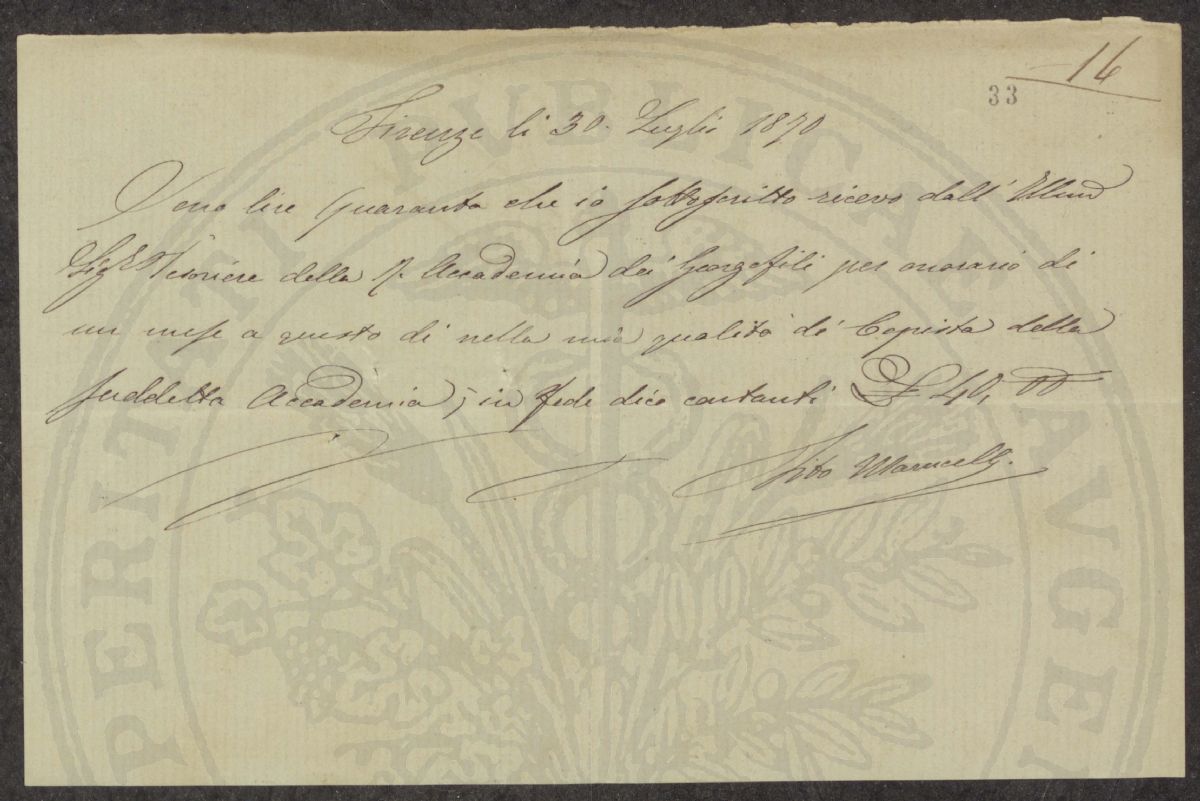 14
33
Firenze li 30. Luglio 1870
Sono lire Quaranta che io sottoscritto ricevo dall' Illmo
Sigr Tesoriere della R. Accademia dei Georgofili per onorario di
un mese a questo dì nella mia qualità di Copista della
suddetta Accademia; in fede dico contanti £ 40,00
Tito Marucelli.
PROSPERITATI PVBLICAE AVGENDAE